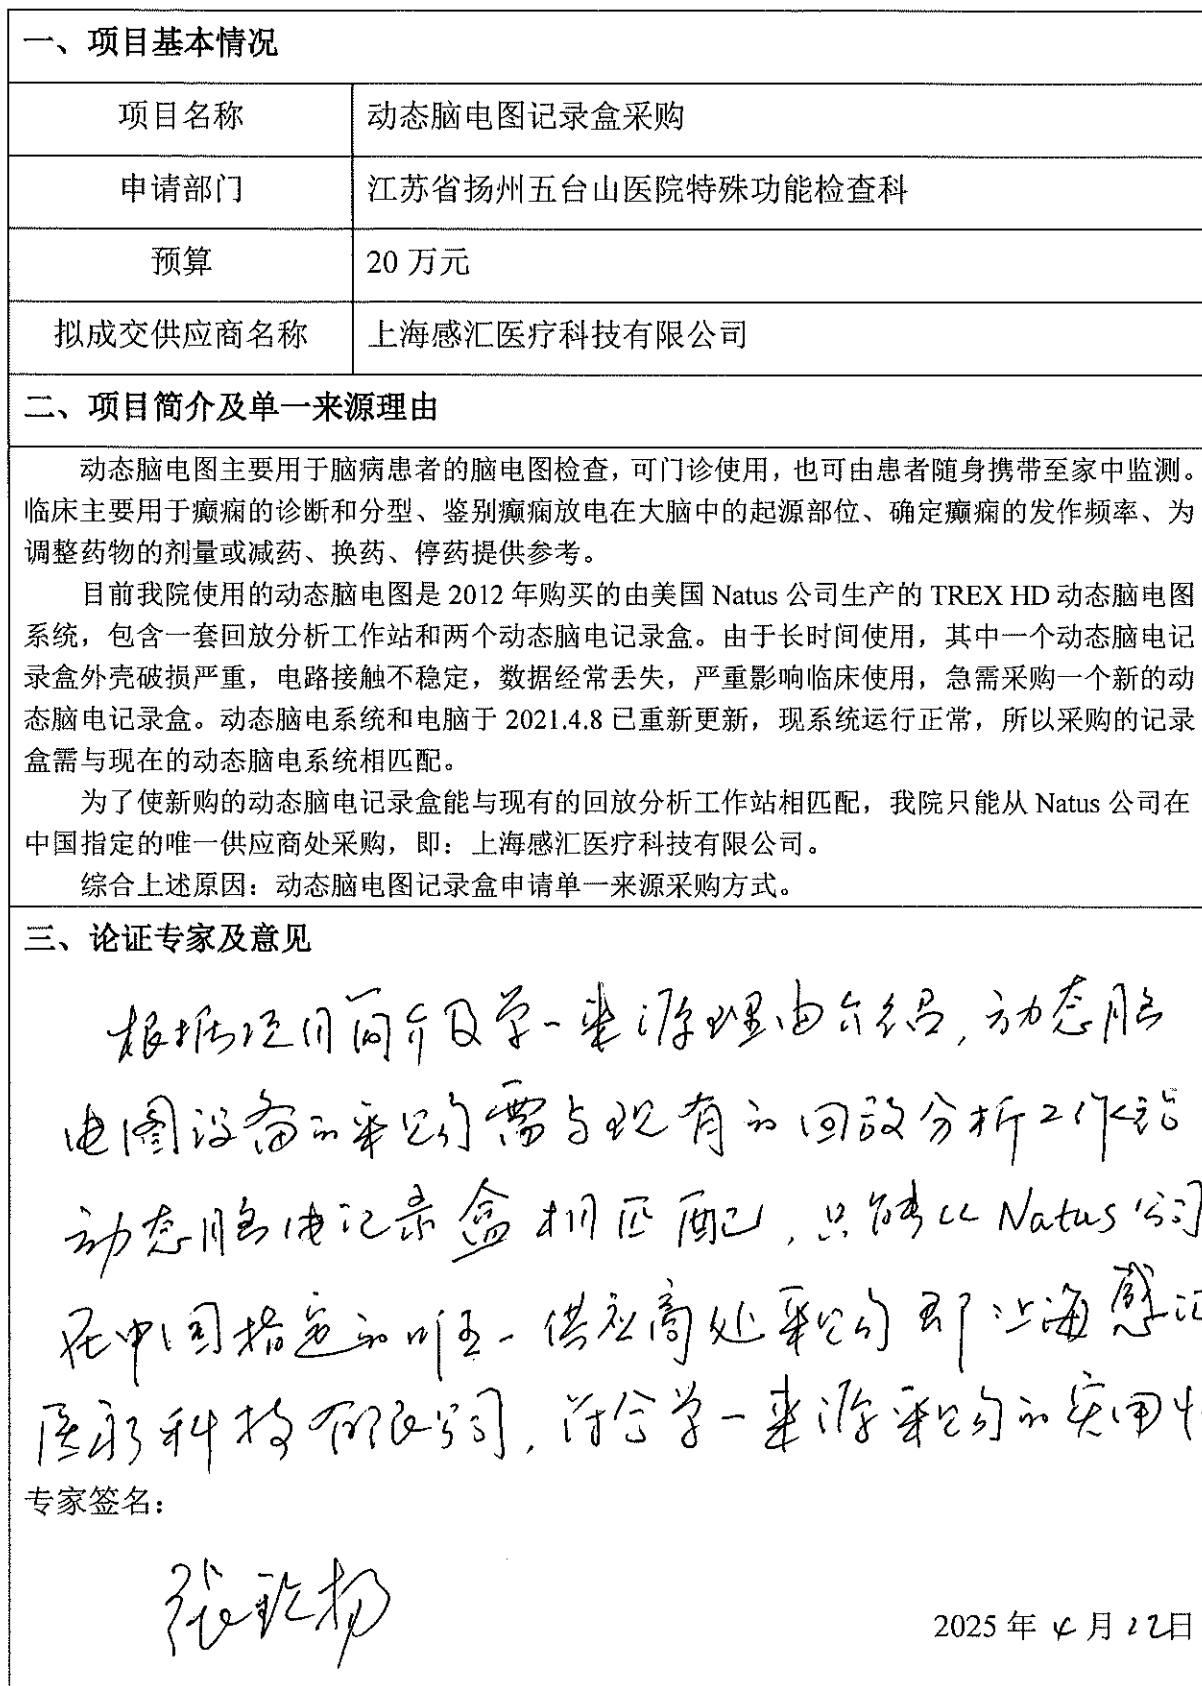 一、项目基本情况
项目名称 动态脑电图记录盒采购
申请部门 江苏省扬州五台山医院特殊功能检查科
预算 20 万元
拟成交供应商名称 上海感汇医疗科技有限公司
二、项目简介及单一来源理由
动态脑电图主要用于脑病患者的脑电图检查，可门诊使用，也可由患者随身携带至家中监测。
临床主要用于癫痫的诊断和分型、鉴别癫痫放电在大脑中的起源部位、确定癫痫的发作频率、为
调整药物的剂量或减药、换药、停药提供参考。
目前我院使用的动态脑电图是 2012 年购买的由美国 Natus 公司生产的 TREX HD 动态脑电图
系统，包含一套回放分析工作站和两个动态脑电记录盒。由于长时间使用，其中一个动态脑电记
录盒外壳破损严重，电路接触不稳定，数据经常丢失，严重影响临床使用，急需采购一个新的动
态脑电记录盒。动态脑电系统和电脑于 2021.4.8 已重新更新，现系统运行正常，所以采购的记录
盒需与现在的动态脑电系统相匹配。
为了使新购的动态脑电记录盒能与现有的回放分析工作站相匹配，我院只能从 Natus 公司在
中国指定的唯一供应商处采购，即：上海感汇医疗科技有限公司。
综合上述原因：动态脑电图记录盒申请单一来源采购方式。
三、论证专家及意见
根据项目简介及单一来源理由介绍，动态脑
电图设备的采购需与现有的回放分析工作站
动态脑电记录盒相匹配，只能从Natus公司
在中国指定的唯一供应商处采购即上海感汇
医疗科技有限公司，符合单一来源采购的实用性
专家签名：
2025 年 4 月 22日